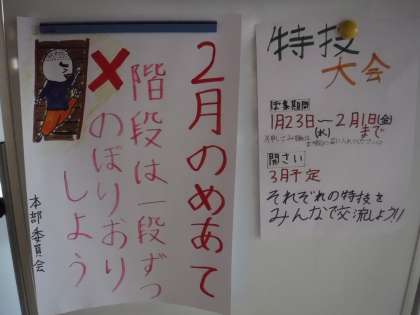 2月のめあて
階段は一段ずつ
のぼりおり
しよう
本部委員会
特技
大会
ぼ集期間
1月23日〜2月1日(金)
(水)
まで
開さい
3月予定
それぞれの特技を
みんなで交流しよう!!